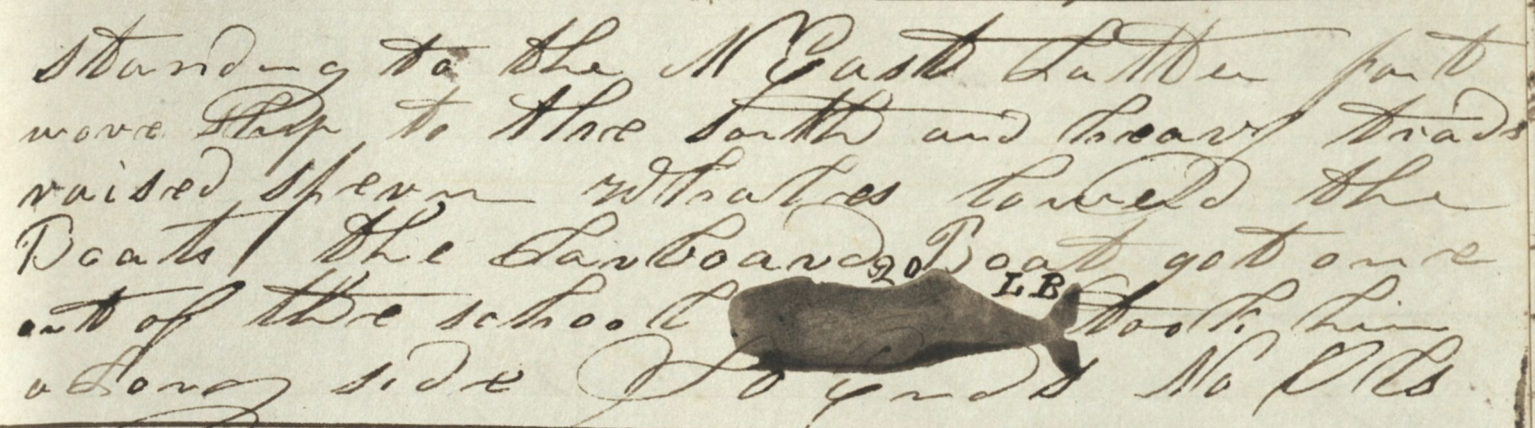 standing to the N East Latter part
wore Ship to the South and heavy trads
raised sperm Whales lowerd the
Boats the Larboard Boat got one
20 LB
out of the school took him
a Long side So Ends No Obs